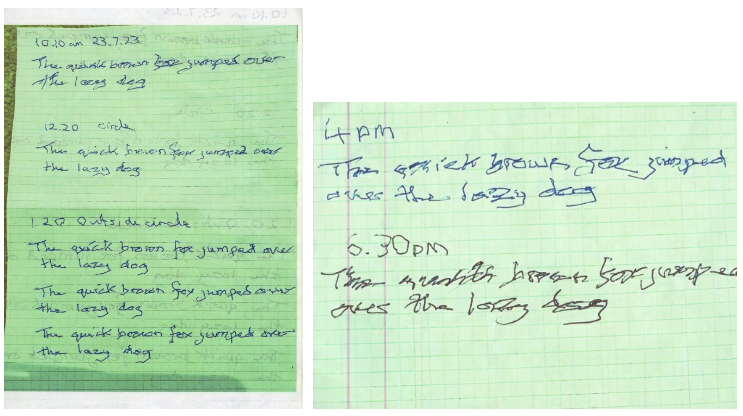 10.10 am 23.7.23
The quick brown fox jumped over
the lazy dog
12.20 circle
The quick brown fox jumped over
the lazy dog
1.20 Outside circle
The quick brown fox jumped over
the lazy dog
The quick brown fox jumped over
the lazy dog
The quick brown fox jumped over
the lazy dog
4pm
The quick brown fox jumped
over the lazy dog
6.30pm
The quick brown fox jumped
over the lazy dog